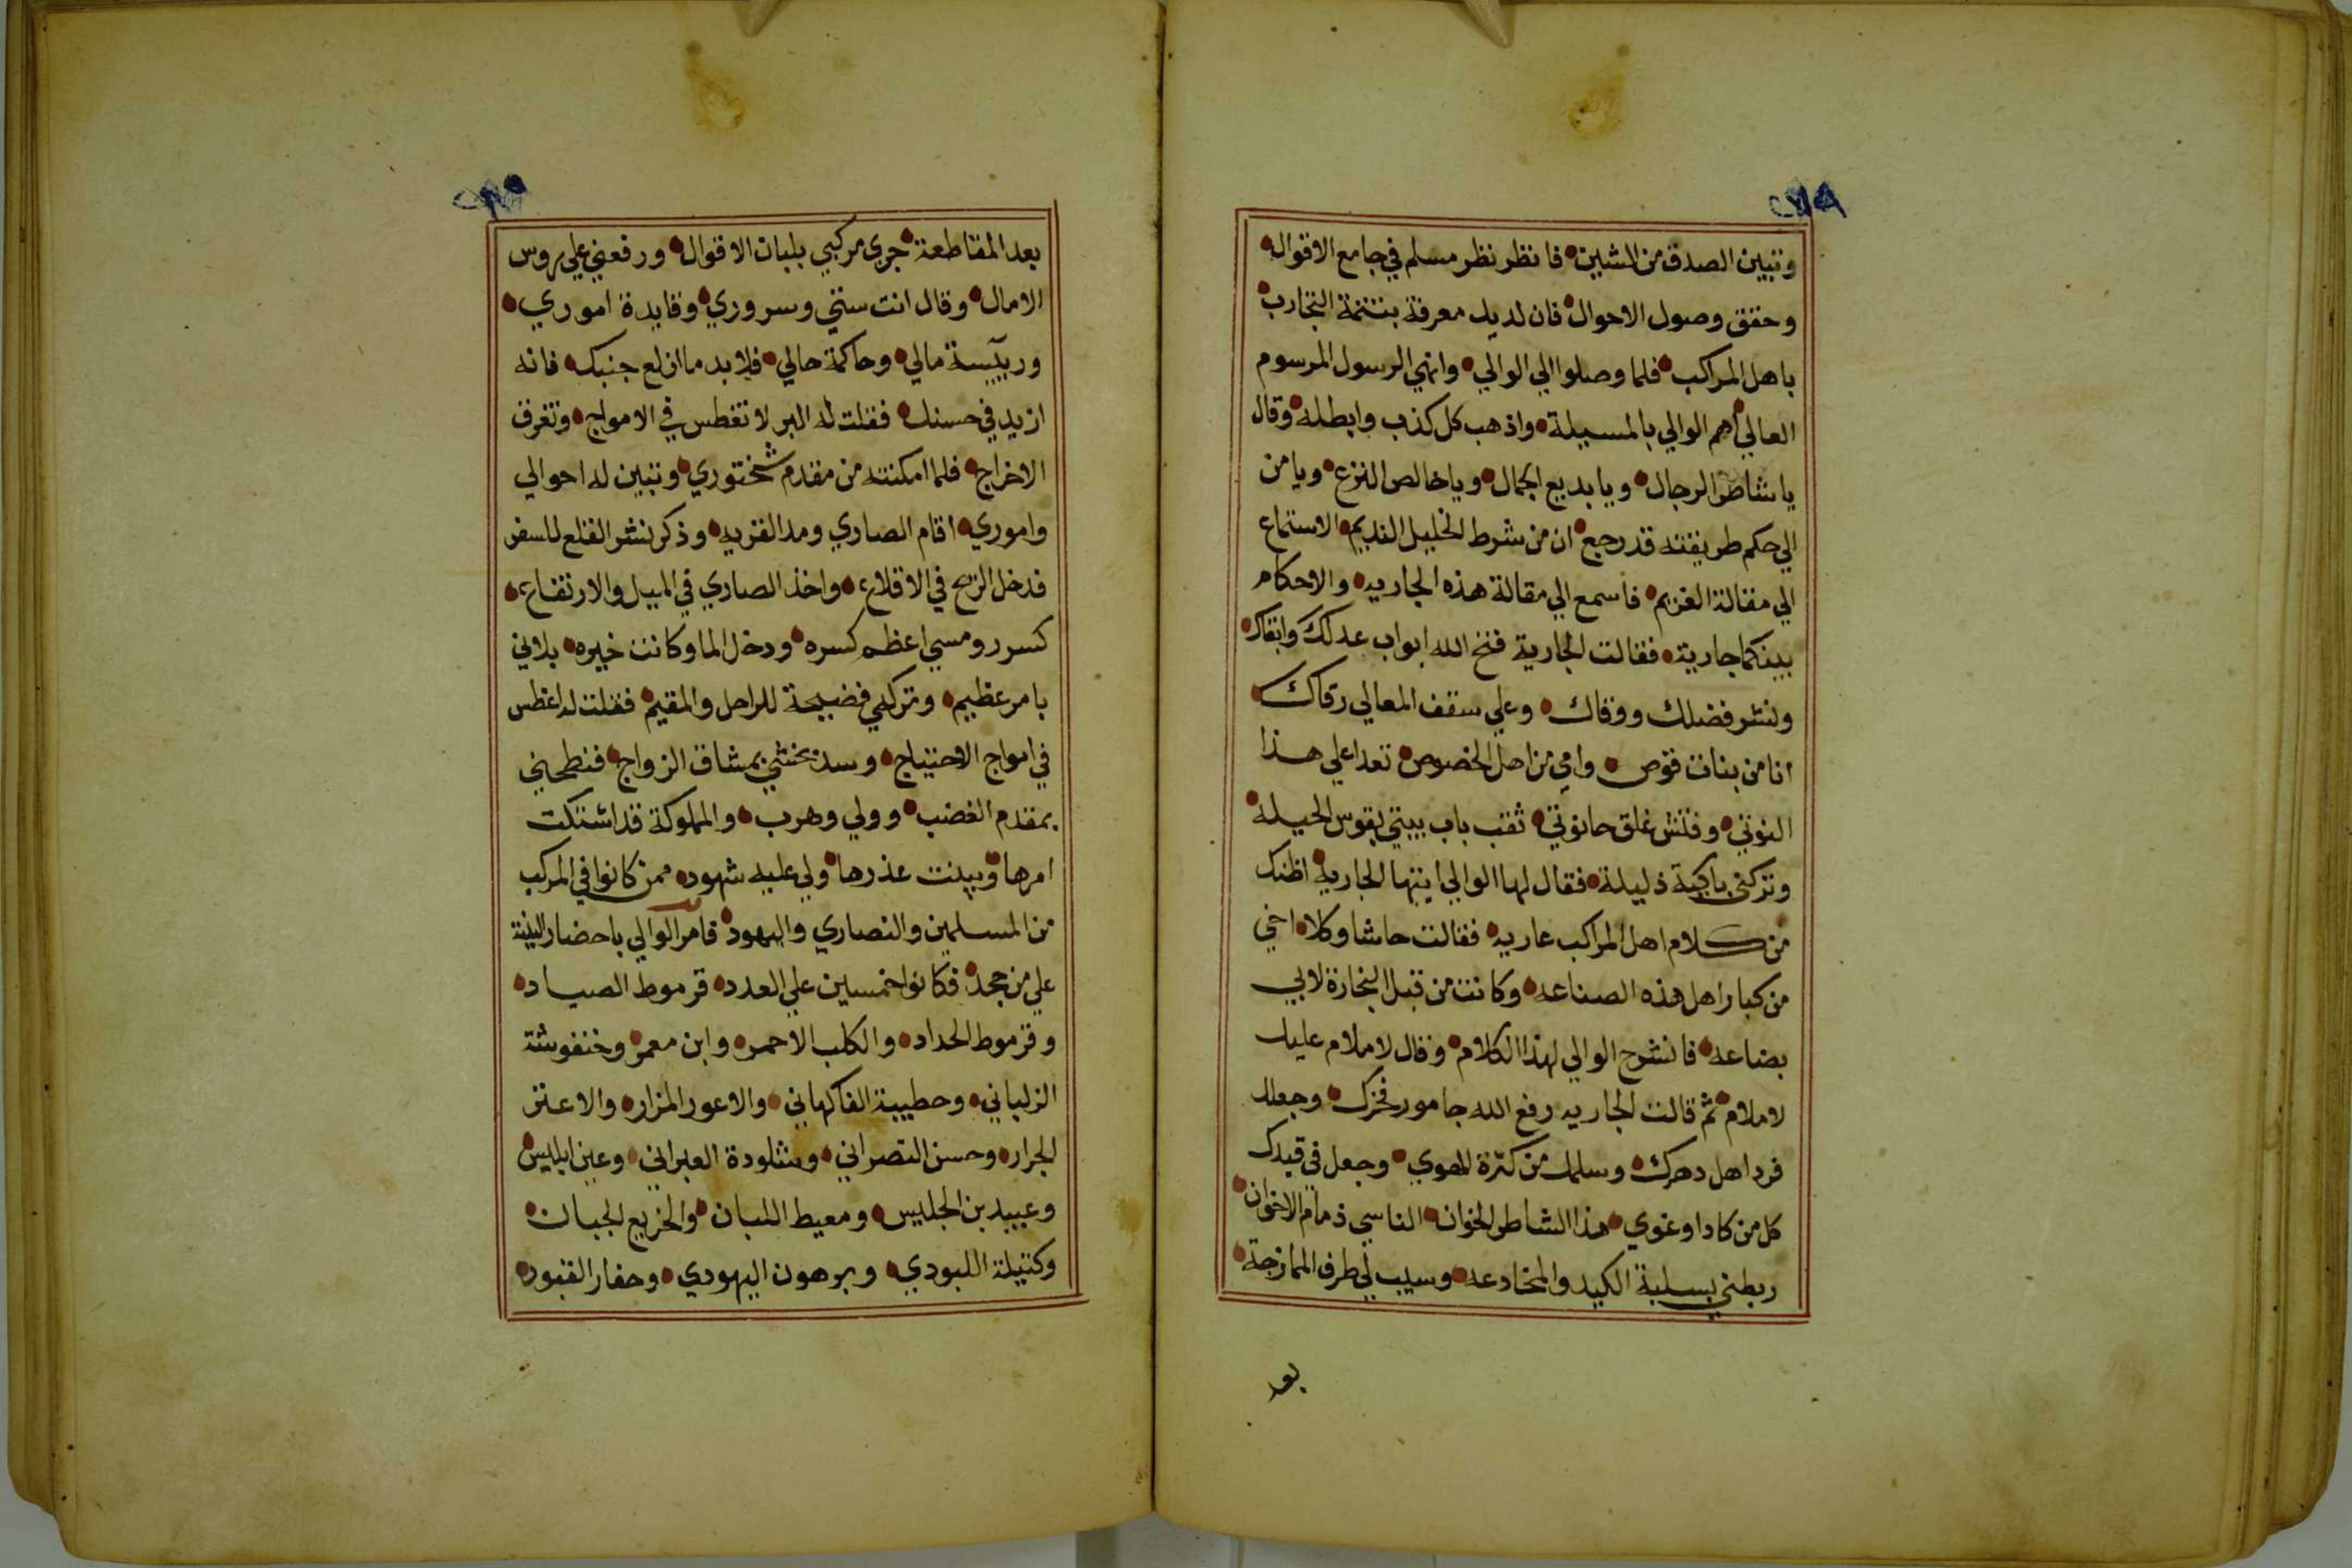 وتبين الصدق من المشين فانظر نظر مسلم في جامع الاقوال
وحقق وصول الاحوال فان لديك معرفة بتتمة التجارب
باهل المراكب فلما وصلوا الي الوالي وانهي الرسول المرسوم
العالي اهم الوالي بالمسيلة واذهب كل كذب وابطله وقال
يا شاطر الرجال ويا بديع الجمال ويا خالص النزع ويا من
الي حكم طريقته قد رجع ان من شرط الخليل القديم الاستماع
الي مقالة الغريم فاسمع الي مقالة هذه الجاريه والاحكام
بينكما جارية فقالت الجارية فتح الله ابواب عدلك وابقاك
ونشر فضلك ووقاك وعلي سقف المعالي رقاك
انا من بنات قوص وامي من اصل الخصوص تعدا علي هذا
النوتي وفتش غلق حانوتي ثقب باب بيتي بقوس الحيلة
وتركني باكية ذليلة فقال لها الوالي ايتها الجارية اظنك
من كلام اهل المراكب عاريه فقالت حاشا وكلا اخي
من كبار اهل هذه الصناعه وكانت من قبل النجارة لابي
بضاعه فانشرح الوالي لهذا الكلام وقال لا ملام عليك
لا ملام ثم قالت الجاريه رفع الله جامور فخرك وجعلك
فرد اهل دهرك وسلمك من كثرة الهوي وجعل في قيدك
كل من كاد او غوي هذا الشاطر الخوان الناسي ذمام الاخوان
ربطني بسلبة الكيد والمخادعه وسيب لي طرف الممازجة
بعد
بعد المقاطعة جري مركبي بلبان الاقوال ورفعني علي روس
الامال وقال انت ستي وسروري وفايدة اموري
وربيسة مالي وحاكمة حالي فلا بد ما ازلع جنبك فانه
ازيد في حسنك فقلت له البر لا تغطس في الامواج وتغرق
الاخراج فلما امكنته من مقدم شختوري وتبين له احوالي
واموري اقام الصاري ومد القريه وذكر نشر القلع للسفر
فدخل الريح في الاقلاع واخذ الصاري في الميل والارتفاع
كسر رومسي اعظم كسره ودخل الما وكانت خيره بلاني
بامر عظيم وتركني فضيحة للراحل والمقيم فقلت له اغطس
في امواج الاحتياج وسد بخشي بمشاق الزواج فنطحني
بمقدم الغضب وولي وهرب والمملوكة قد اشتكت
امرها وبينت عذرها ولي عليه شهود ممن كانوا في المركب
من المسلمين والنصاري واليهود فامر الوالي باحضار البينة
علي من جحد فكانوا خمسين علي العدد قرموط الصياد
وقرموط الحداد والكلب الاحمر وابن معمر وخنفوشة
الزلباني وحطيبة الفاكهاني والاعور المزار والاعتر
الجرار وحسن النصراني وشلودة العبراني وعين ابليس
وعبيد بن الجليس ومعيط اللبان والخريع الجبان
وكتيلة اللبودي وبرهون اليهودي وحفار القبور